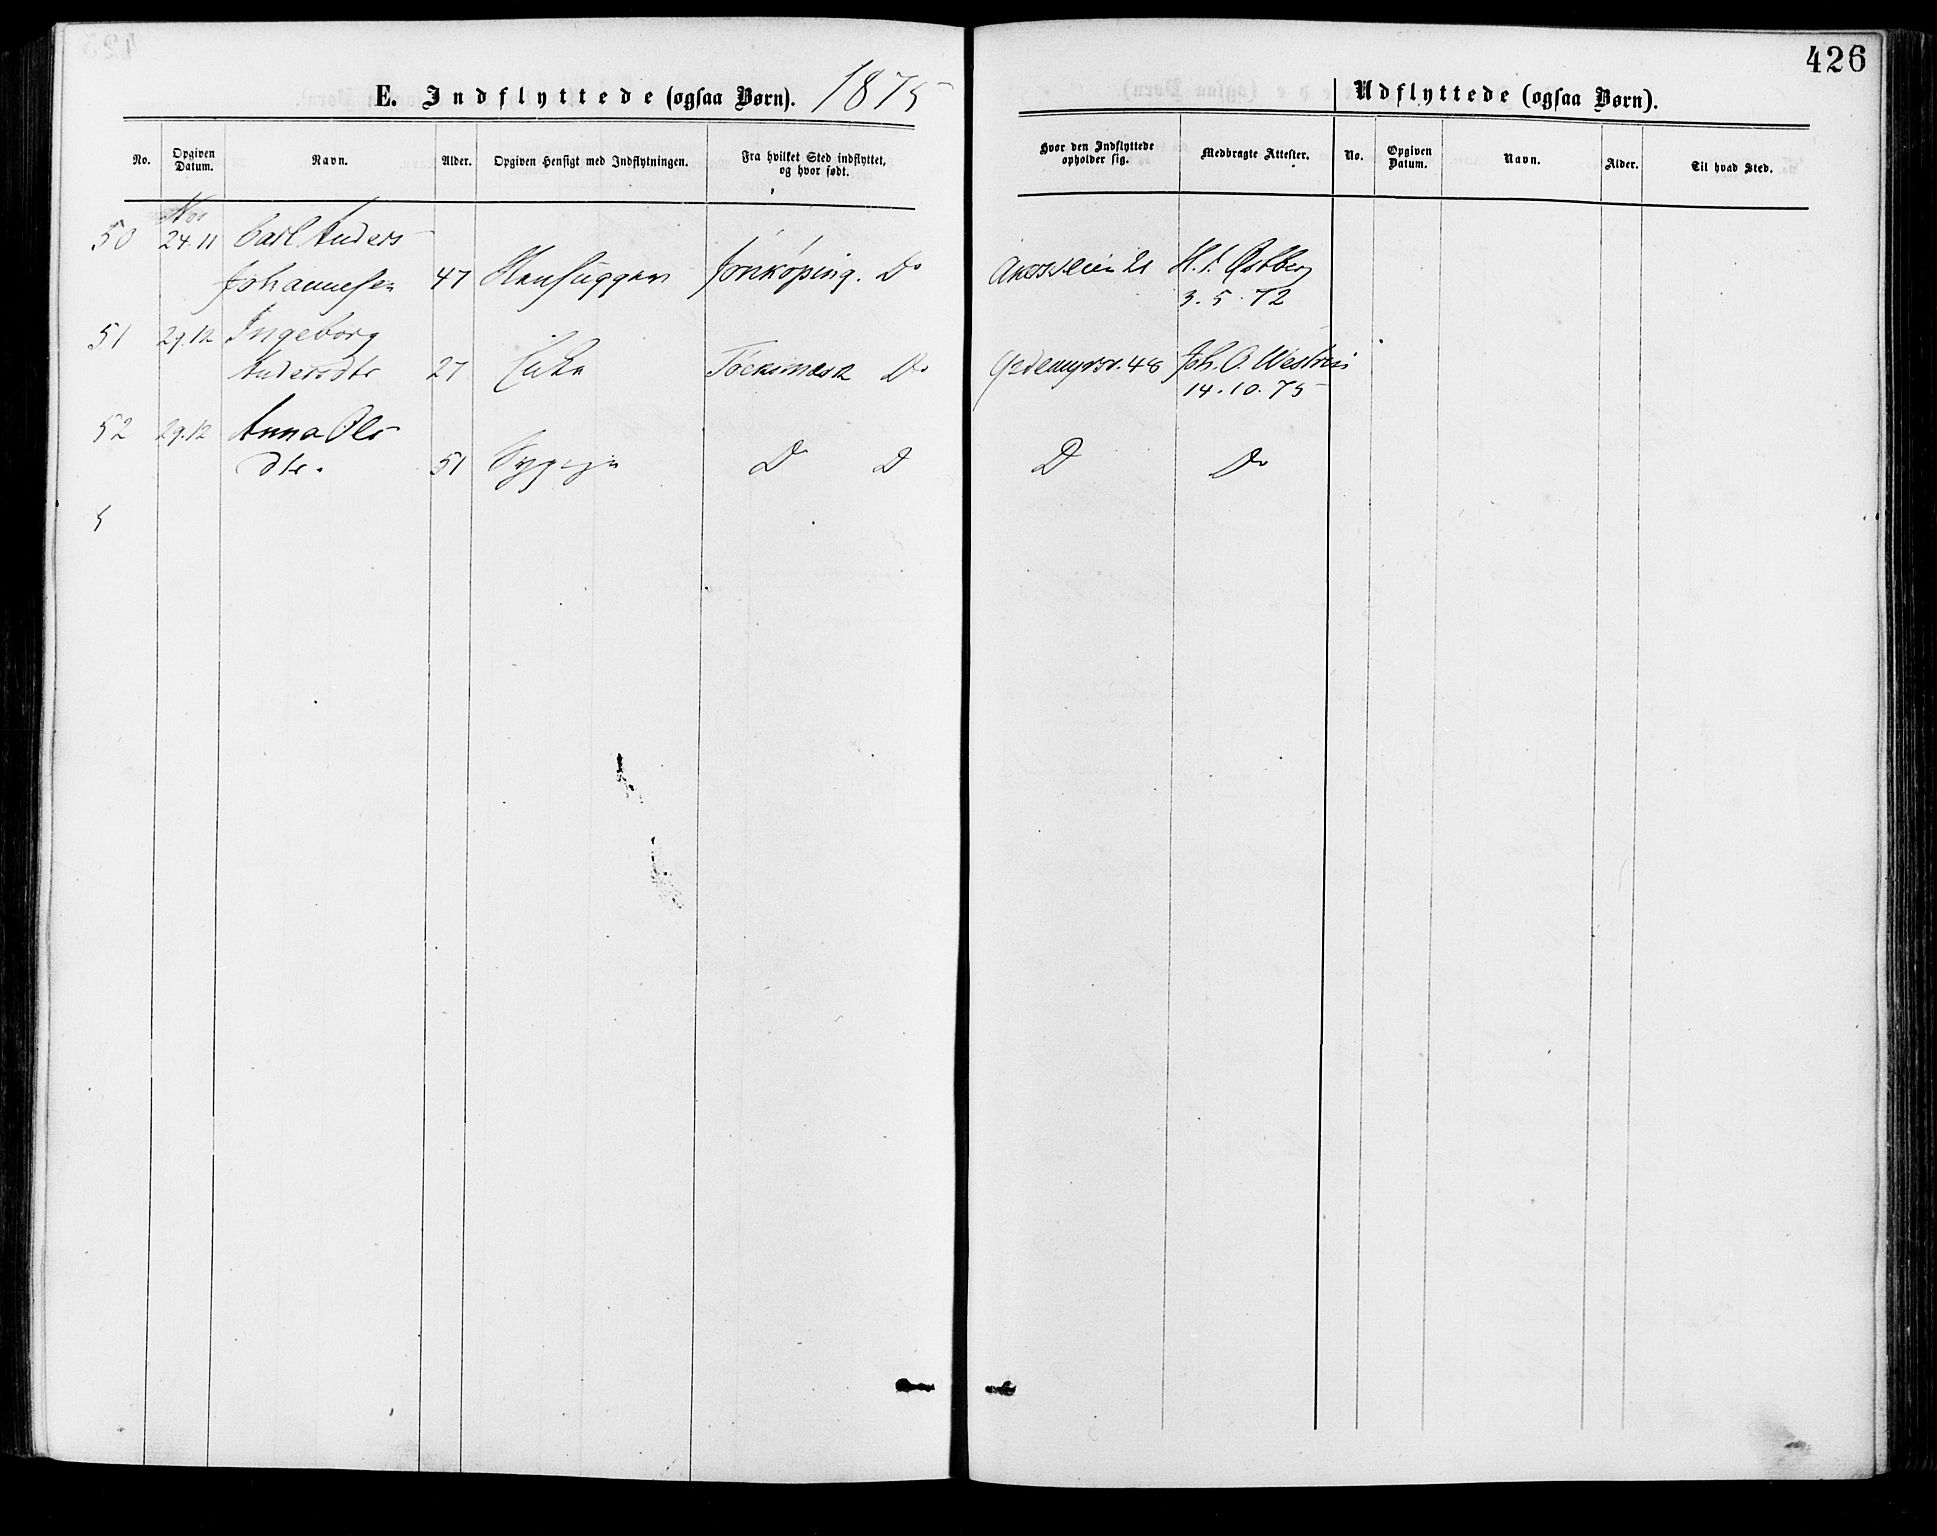 426
E. Indflyttede (ogsaa Børn). 1875
Udflyttede (ogsaa Børn).
No.
Opgiven Datum.
Navn.
Alder.
Opgiven Hensigt med Indflytningen.
Fra hvilket Sted indflyttet, og hvor født.
Hvor den Indflyttede opholder sig.
Medbragte Attester.
No.
Opgiven Datum.
Navn.
Alder.
Til hvad Sted.
Nov
50 24.11 Carl Anders
Johannesen 47 Stenhugger Jönköping. Do Akersveien 21 H. Østberg
3.5.72
51 29.12 Ingeborg
Andersdtr 27 Töcksmark Do 48 Joh. O.
14.10.75
52 29.12 Anna Ols
dtr. 51 D D D Do
5